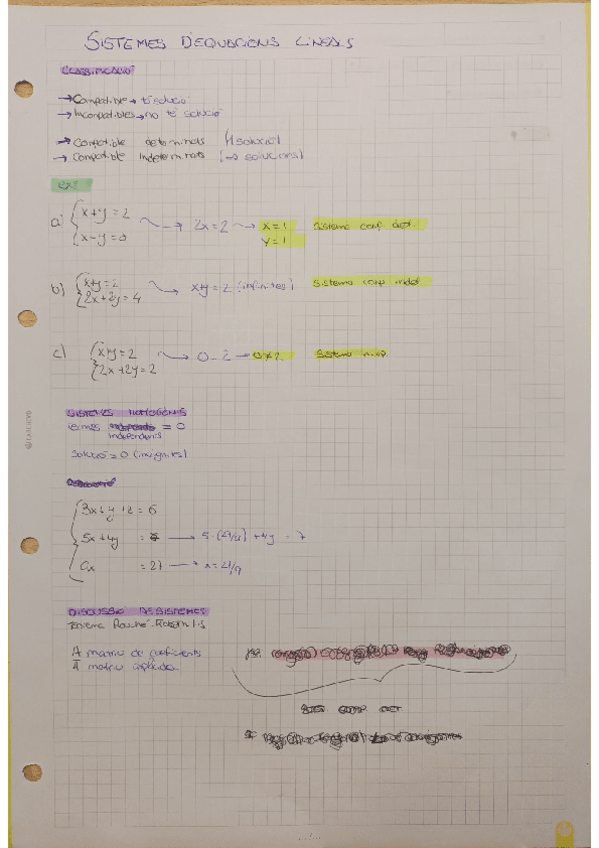 SISTEMES D'EQUACIONS LINEALS
CLASSIFICACIÓ
→ Compatible → té solució
→ Incompatibles → no té solució
→ Compatible determinats (1 solució)
→ Compatible Indeterminats (∞ solucions)
ex:
a) { x+y=2 → 2x=2 → x=1 Sistema comp. det.
x-y=0 y=1
b) { x+y=2 → x+y=2 (infinites) Sistema comp indet
2x+2y=4
c) { x+y=2 → 0=2 → 0≠2 Sistema incomp.
2x+2y=2
SISTEMES HOMOGENIS
Termes = 0
independents
Solució = 0 (incògnites)
3x+y+z=6
5x+4y = → + 4y = 7
= 27 →
DISCUSSIÓ SISTEMES
Teorema Rouché
A matriu de coeficients
Ā matriu ampliada
COMP DET